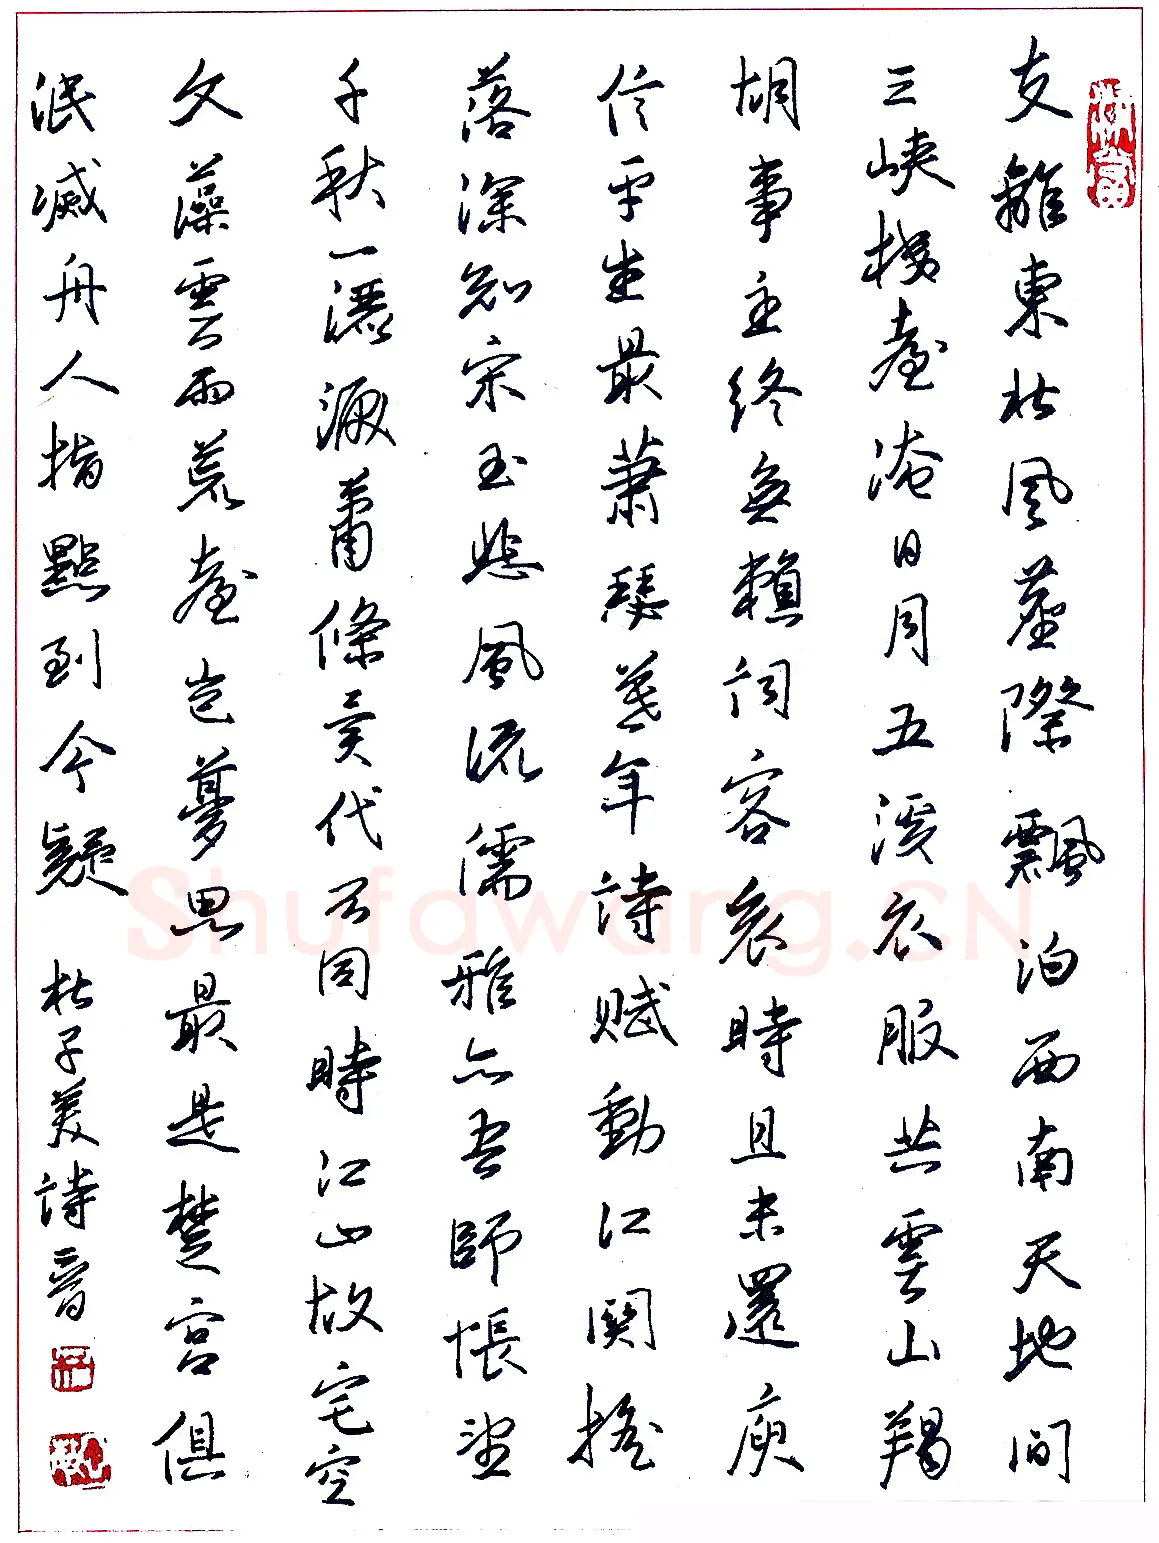 支離東北風塵際飄泊西南天地間
三峽樓臺淹日月五溪衣服共雲山羯
胡事主終無賴詞客哀時且未還庾
信平生最蕭瑟暮年詩賦動江關搖
落深知宋玉悲風流儒雅亦吾師悵望
千秋一灑淚蕭條異代不同時江山故宅空
文藻雲雨荒臺豈夢思最是楚宮俱
泯滅舟人指點到今疑 杜子美詩
Shufawang.CN